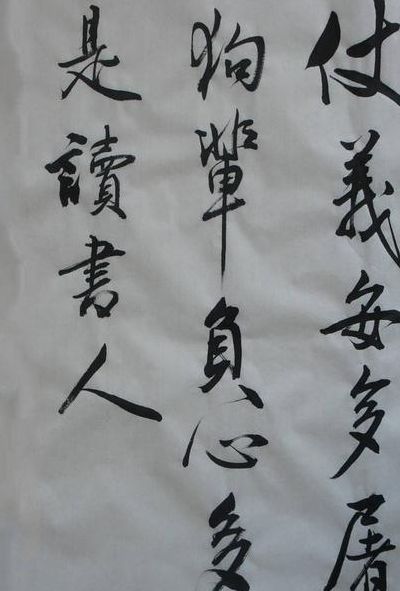 仗義每多屠
狗輩負心多
是讀書人